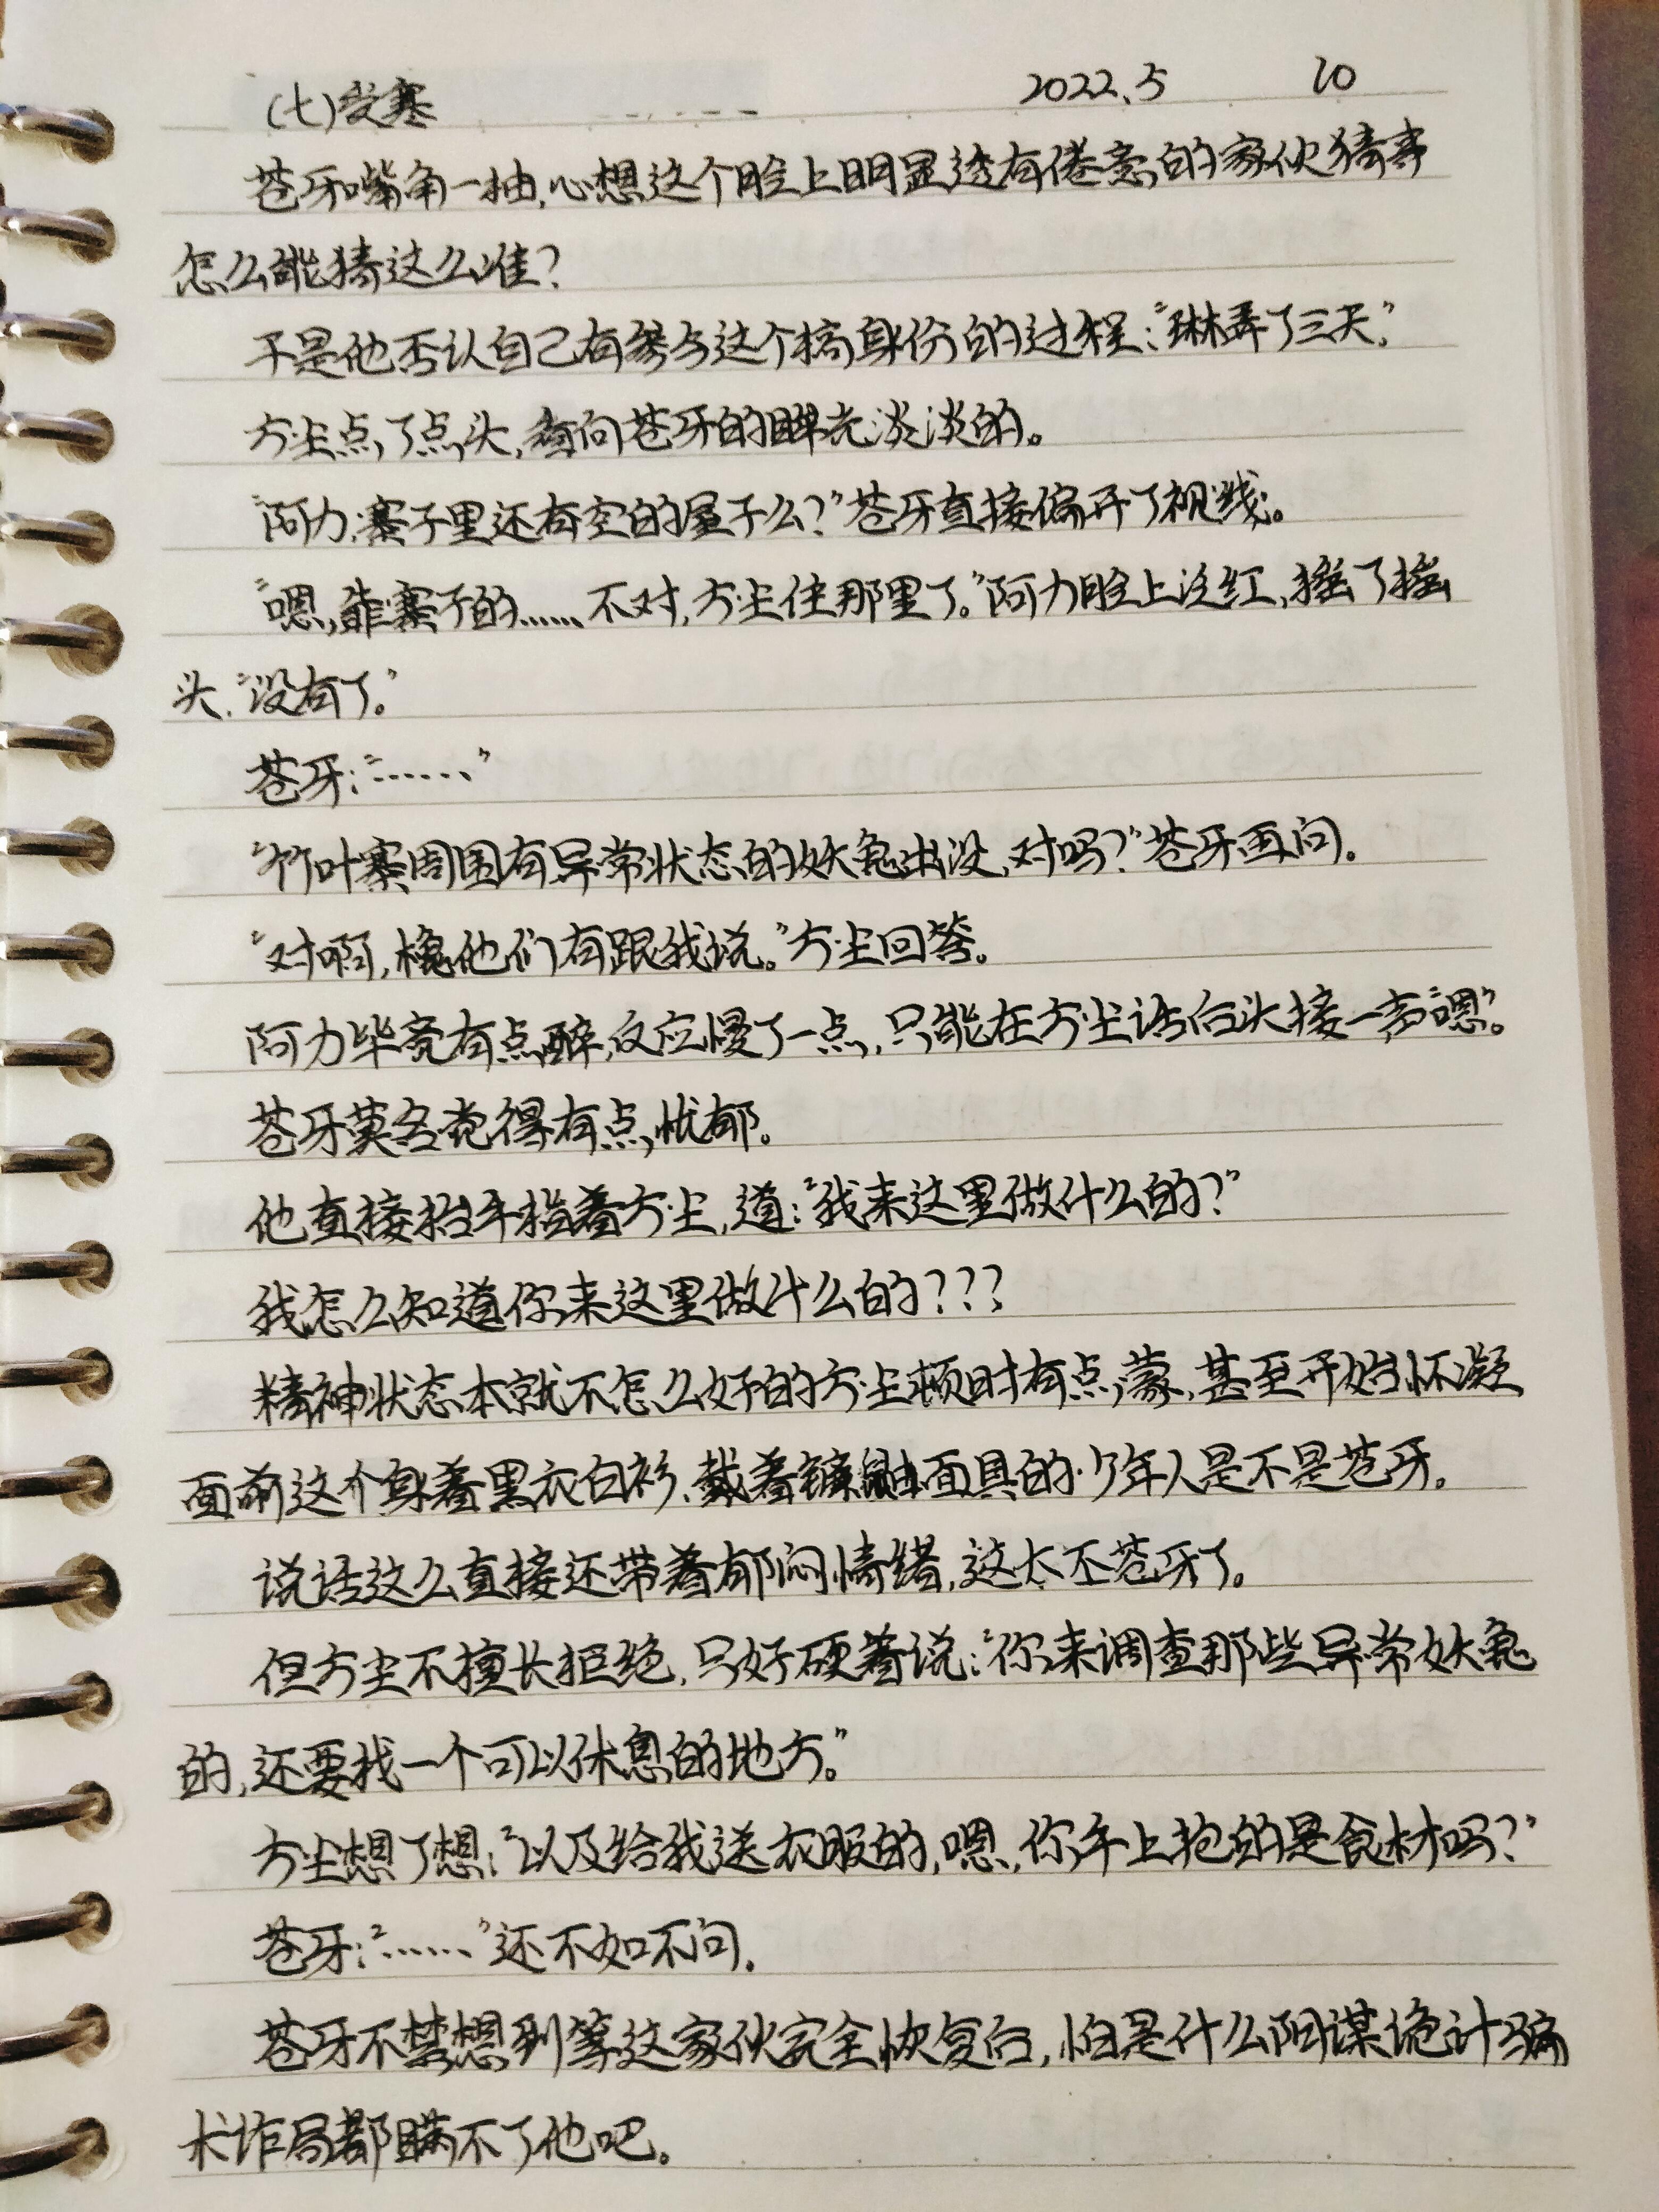 (七)发寒 2022.5 10
苍牙嘴角一抽,心想这个脸上明显透有倦意的家伙猜事
怎么能猜这么准?
于是他否认自己有参与这个搞身份的过程:“琳弄了三天。”
方尘点了点头,看向苍牙的眸光淡淡的。
“阿力,寨子里还有空的屋子么?”苍牙直接偏开了视线。
“嗯,靠寨子的……不对,方尘住那里了。”阿力脸上泛红,摇了摇
头.“没有了。”
苍牙:“……”
“竹叶寨周围有异常状态的妖鬼出没,对吗?”苍牙再问。
“对啊,槐他们有跟我说。”方尘回答。
阿力毕竟有点醉,反应慢了一点,只能在方尘话后头接一声“嗯”。
苍牙莫名觉得有点忧郁。
他直接抬手指着方尘,道:“我来这里做什么的?”
我怎么知道你来这里做什么的???
精神状态本就不怎么好的方尘顿时有点蒙,甚至开始怀凝
面前这个身着黑衣白衫、戴着面具的少年人是不是苍牙。
说话这么直接还带着郁闷情绪,这太不苍牙了。
但方尘不擅长拒绝,只好硬着说:“你来调查那些异常妖鬼
的,还要找一个可以休息的地方。”
方尘想了想:“以及给我送衣服的,嗯,你手上抱的是食材吗?”
苍牙:“……”还不如不问.
苍牙不禁想到等这家伙完全恢复后,怕是什么阴谋诡计骗
术诈局都瞒不了他吧。